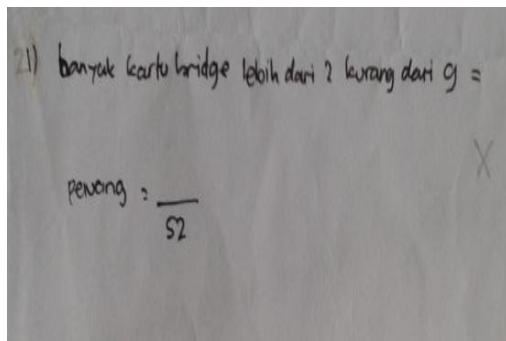 21) banyak kartu bridge lebih dari 2 kurang dari 9 =
X
peluang = —
52